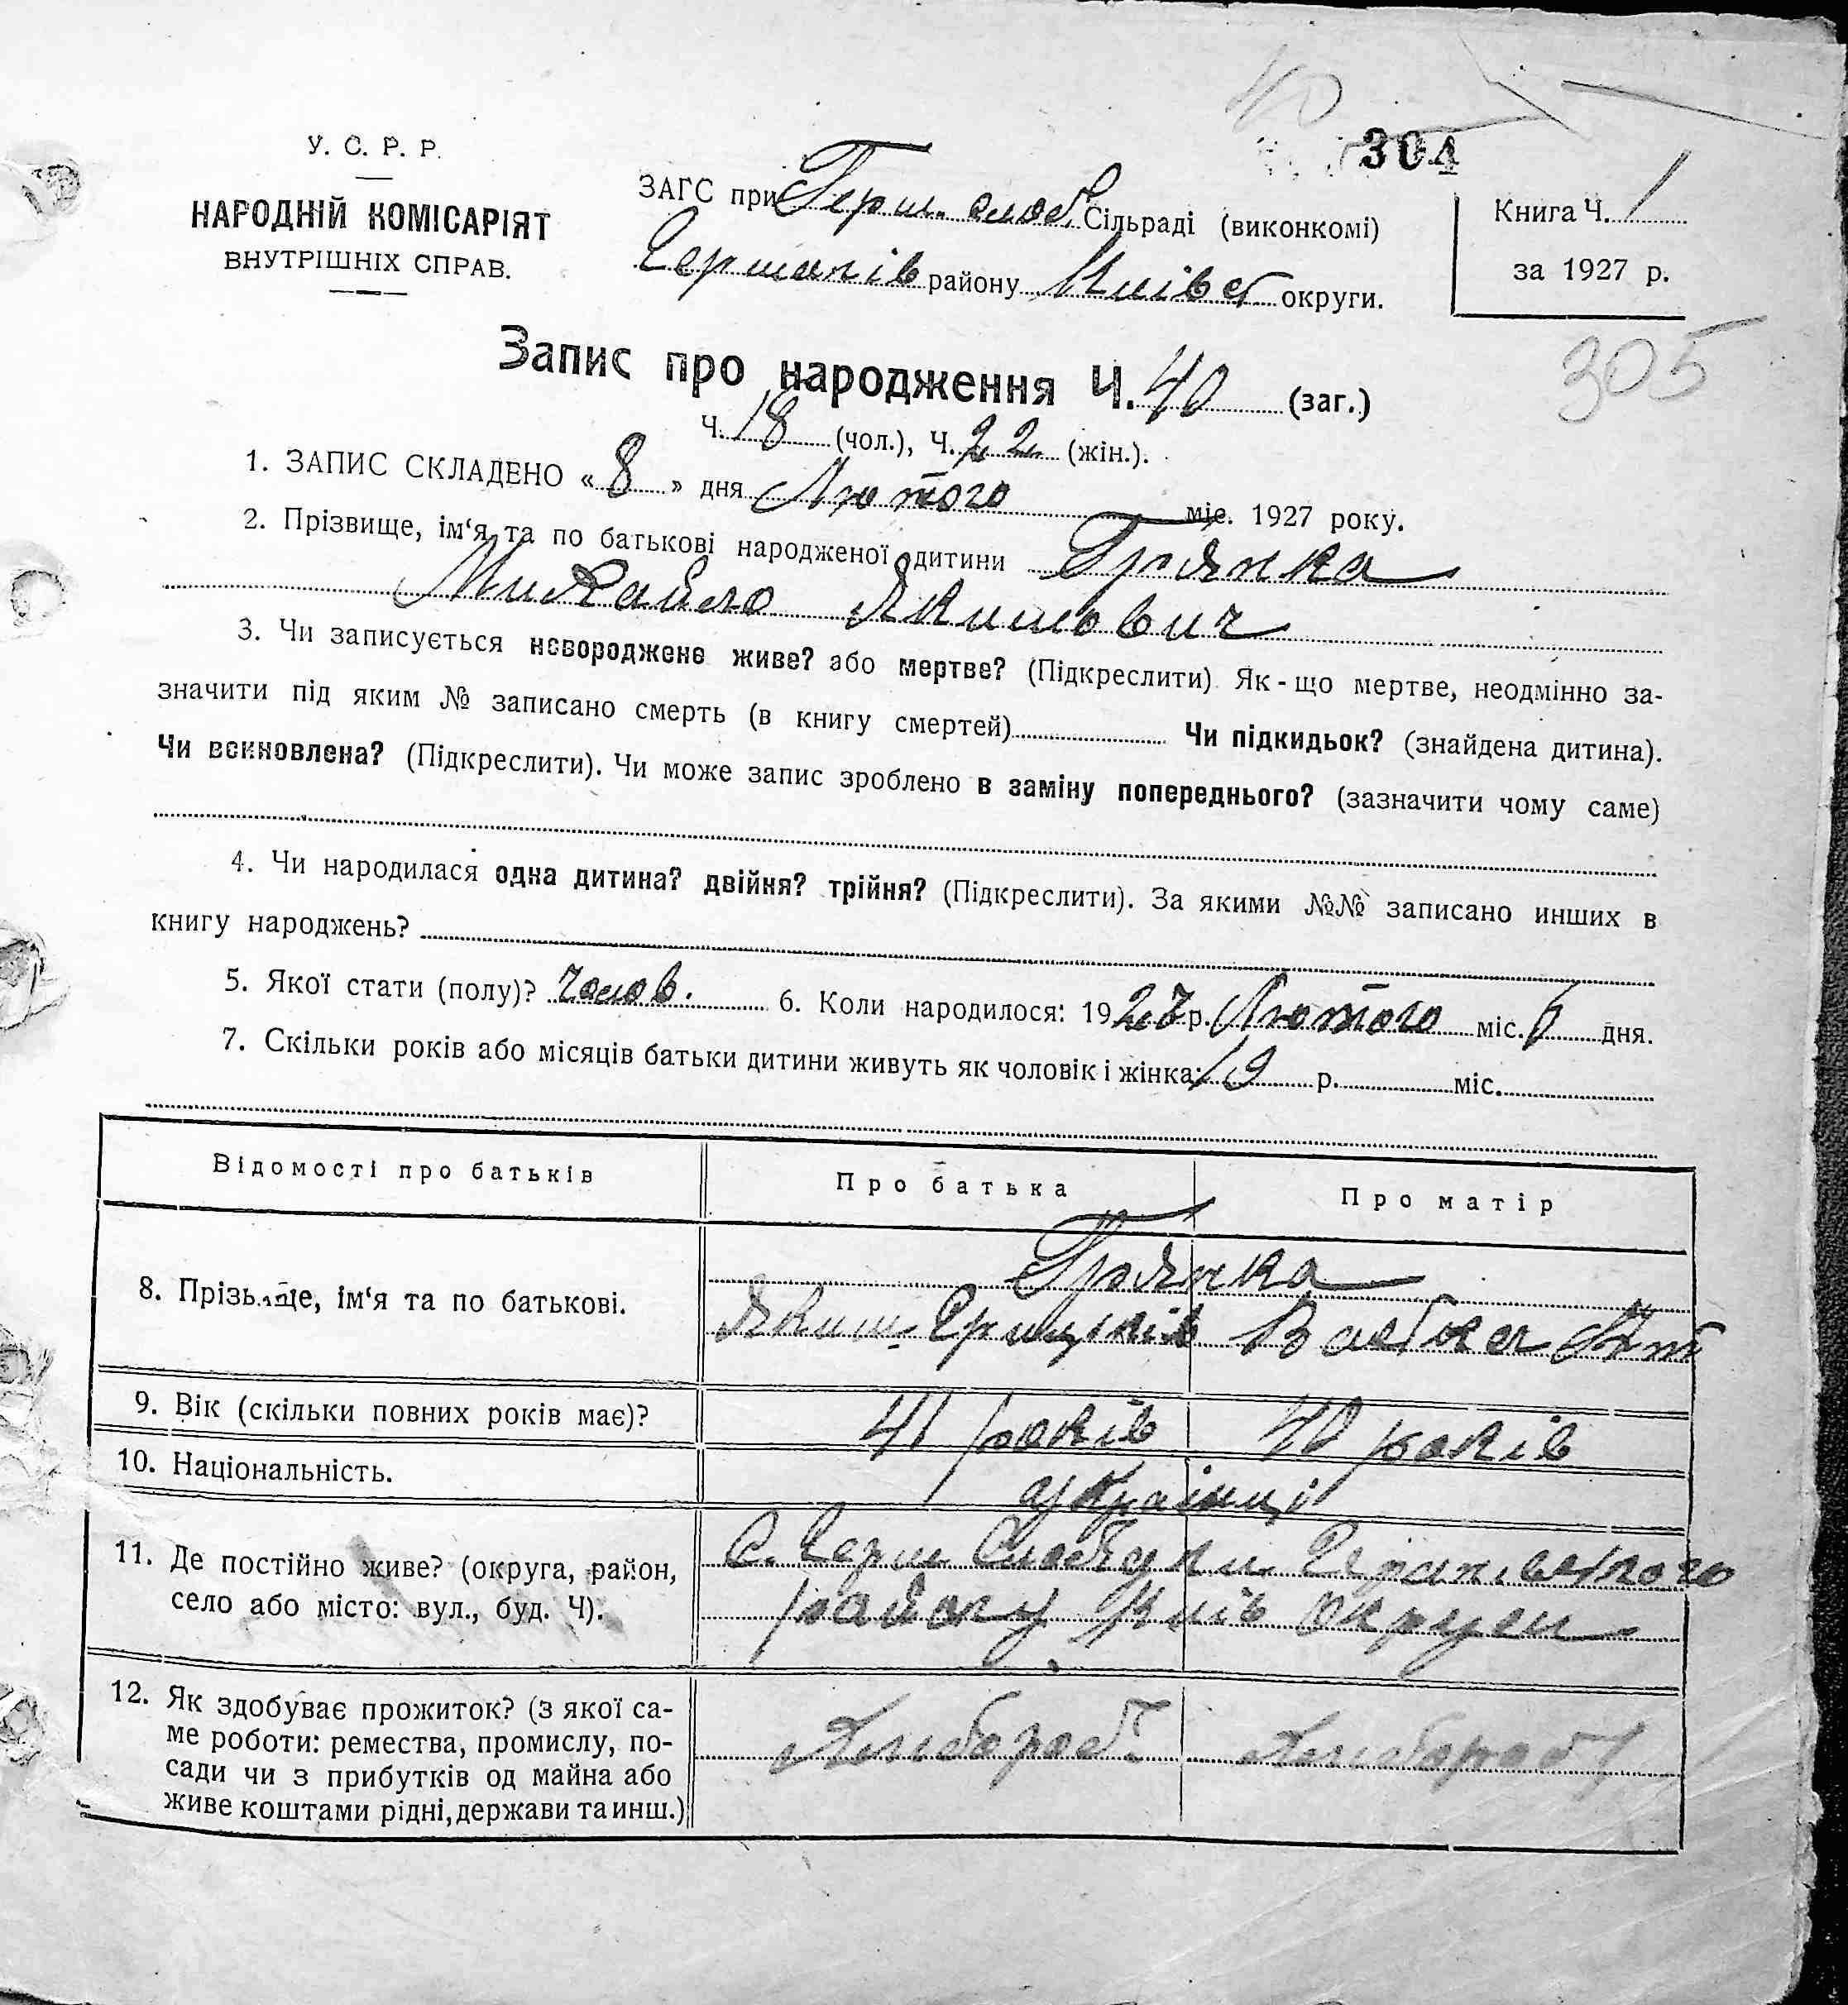 40
304
У. С. Р. Р.
НАРОДНІЙ КОМІСАРІЯТ
ВНУТРІШНІХ СПРАВ.
ЗАГС при Герм. слоб. Сільраді (виконкомі)
району Київс округи.
Книга Ч. 1
за 1927 р.
305
Запис про народження Ч. 40 (заг.)
Ч. 18 (чол.), Ч. 22 (жін.).
1. ЗАПИС СКЛАДЕНО « 8 » дня Лютого міс. 1927 року.
2. Прізвище, ім‘я та по батькові народженої дитини
Михайло Якимович
3. Чи записується новороджене живе? або мертве? (Підкреслити). Як-що мертве, неодмінно за-
значити під яким № записано смерть (в книгу смертей) Чи підкидьок? (знайдена дитина).
Чи всиновлена? (Підкреслити). Чи може запис зроблено в заміну попереднього? (зазначити чому саме)
4. Чи народилася одна дитина? двійня? трійня? (Підкреслити). За якими №№ записано инших в
книгу народжень?
5. Якої стати (полу)? Чолов. 6. Коли народилося: 1927 р. Лютого міс. 6 дня.
7. Скільки років або місяців батьки дитини живуть як чоловік і жінка: 19 р. міс.
Відомості про батьків Про батька Про матір
8. Прізвище, ім‘я та по батькові.
Яким Грицьків
9. Вік (скільки повних років має)? 41 років 40 років
10. Національність. українці
11. Де постійно живе? (округа, район,
село або місто: вул., буд. Ч).
С. Герм Слобідки
району Київ округи
12. Як здобуває прожиток? (з якої са-
ме роботи: ремества, промислу, по-
сади чи з прибутків од майна або
живе коштами рідні, держави та инш.)
Хлібороб. Хлібороб